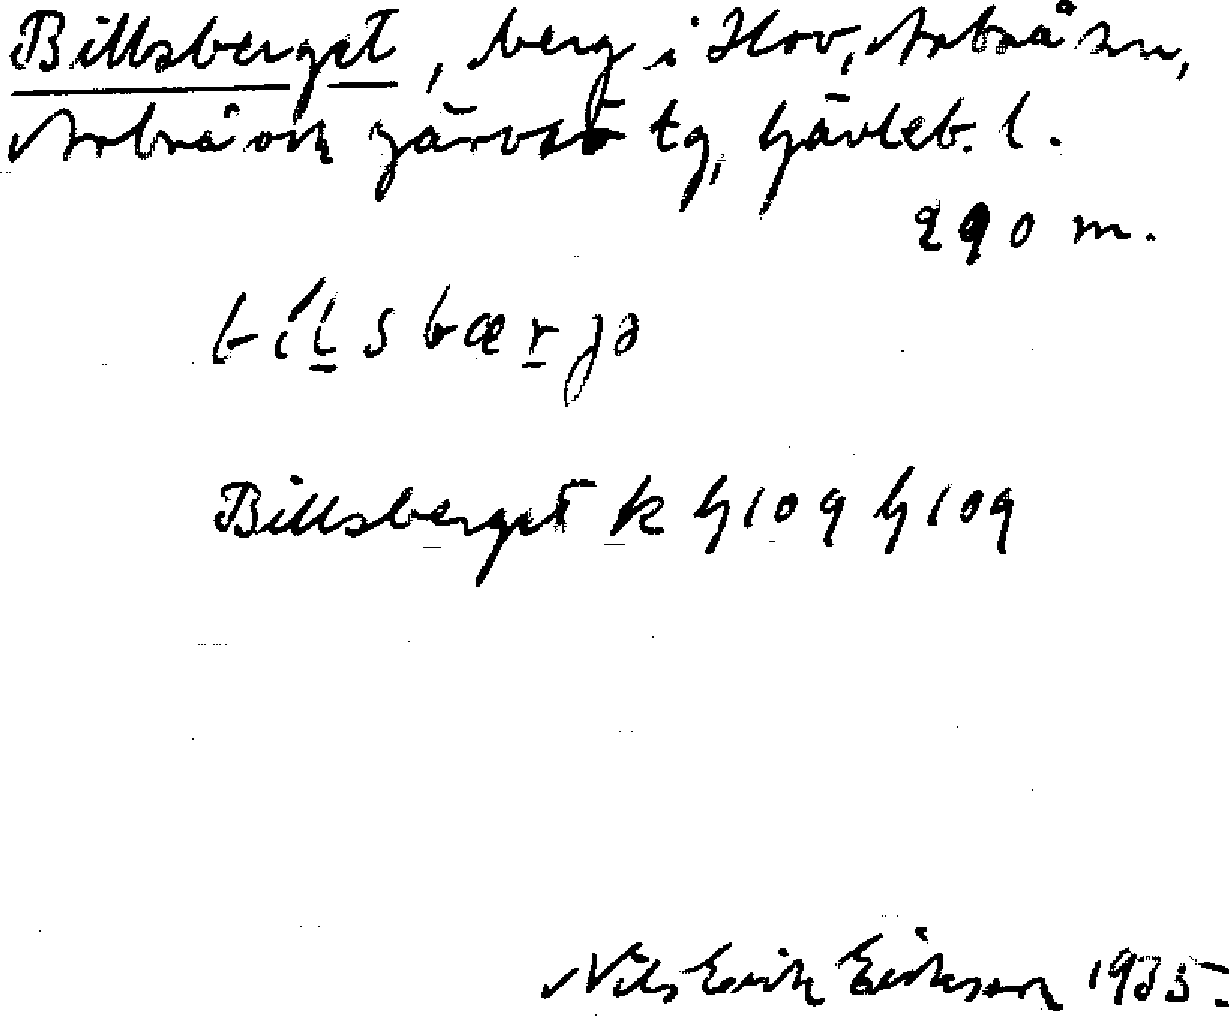 Billsberget, berg i Hov, Arbrå sn,
Arbrå och Järvsö tg, Gävleb. l.
290 m.
bíl̲sbær̲jə
Billsberget k G 109 G 109
Nils Erik Eriksson 1935.